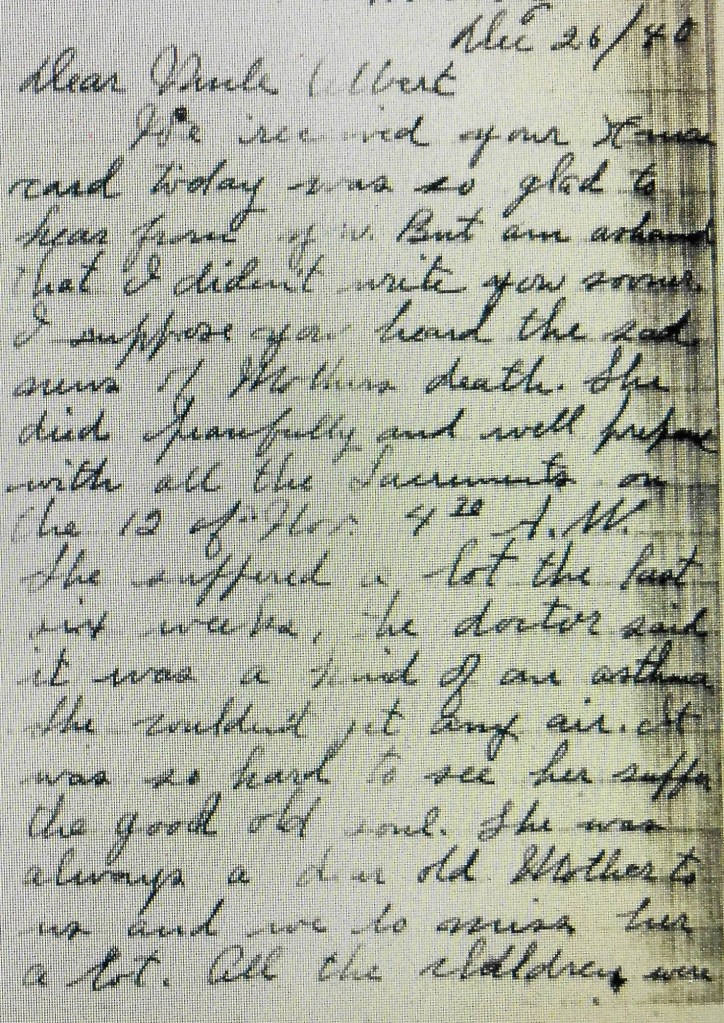 Dec 26/40
Dear Uncle Albert
We received your Xmas
card today was so glad to
hear from you. But am ashamed
that I diden't write you sooner.
I suppose you heard the sad
news of Mothers death. She
died peacefully and well prepared
with all the Sacraments on
the 12 of Nov. 4 20 A.M.
She suffered a lot the last
six weeks, the doctor said
it was a kind of an asthma
she couldent get any air. It
was so hard to see her suffer
the good old soul. She was
always a dear old Mother to
us and we do miss her
a lot. All the children were